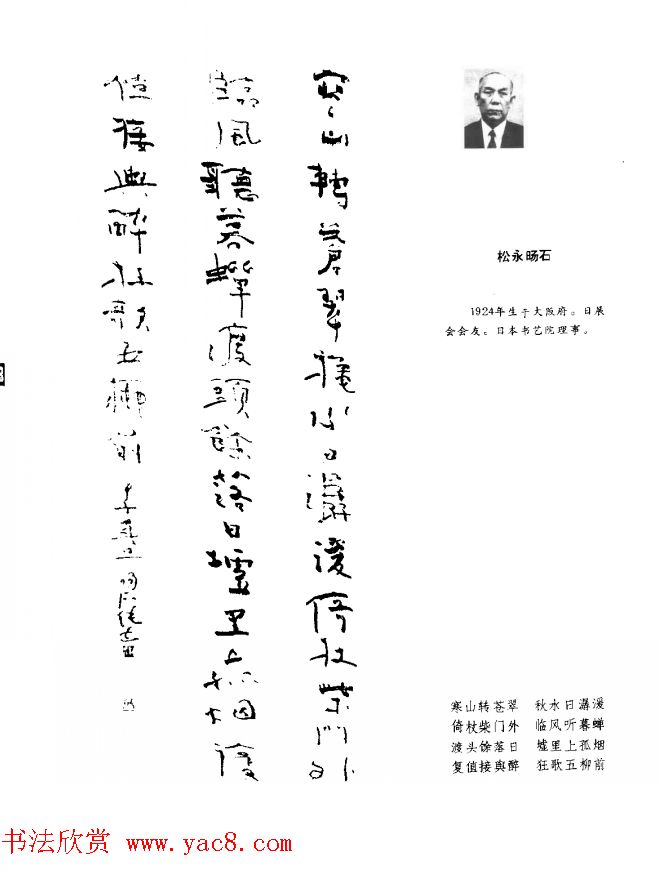 寒山轉蒼翠秋水日潺湲倚杖柴門外
臨風聽暮蟬渡頭餘落日墟里上孤烟復
值接輿醉狂歌五柳前
松永旸石
1924年生于大阪府。日展
会会友。日本书艺院理事。
寒山转苍翠 秋水日潺湲
倚杖柴门外 临风听暮蝉
渡头馀落日 墟里上孤烟
复值接舆醉 狂歌五柳前
书法欣赏 www.yac8.com